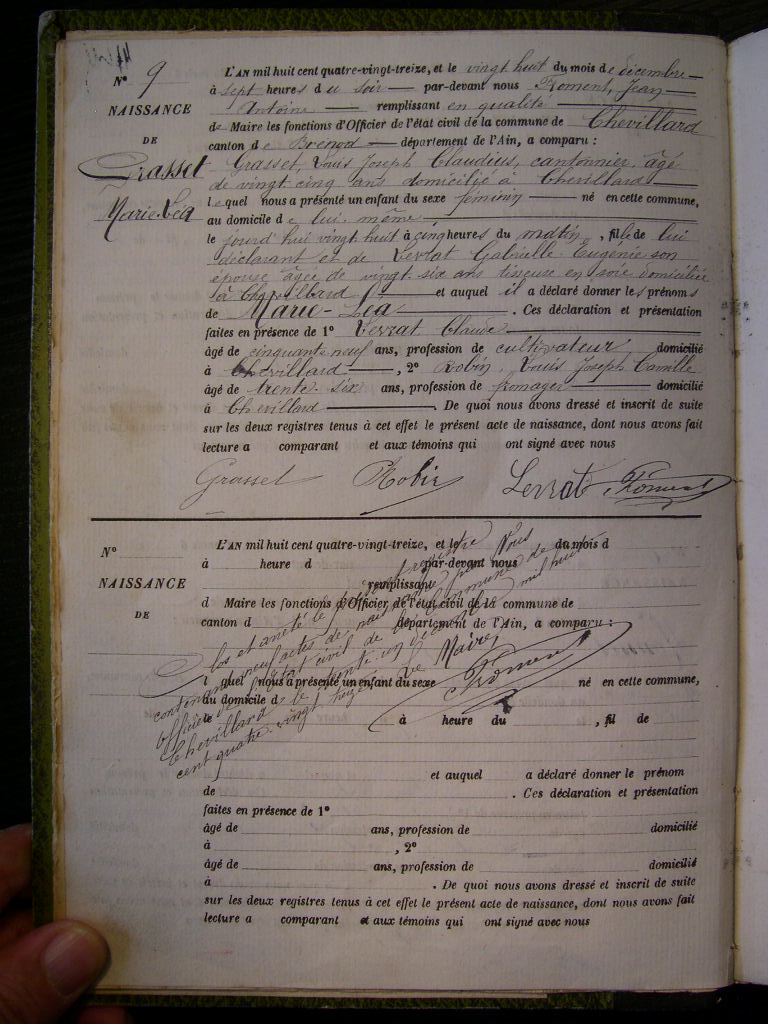 N° 9
NAISSANCE
DE
Grasset
Marie-Léa
L'AN mil huit cent quatre-vingt-treize, et le vingt huit du mois de décembre
à sept heures du soir par-devant nous Froment, Jean
Antoine remplissant en qualité
de Maire les fonctions d'Officier de l'état civil de la commune de Chevillard
canton de Brenod département de l'Ain, a comparu :
Grasset, Louis Joseph Claudius, cantonnier, âgé
de vingt cinq ans domicilié à Chevillard
lequel nous a présenté un enfant du sexe féminin né en cette commune,
au domicile de lui même
le jourd'hui vingt huit à cinq heures du matin, fille de lui
déclarant et de Levrat Gabrielle Eugénie son
épouse âgée de vingt six ans tisseuse en soie domiciliée
à Chevillard et auquel il a déclaré donner les prénoms
de Marie-Léa . Ces déclaration et présentation
faites en présence de 1° Levrat Claude
âgé de cinquante neuf ans, profession de cultivateur domicilié
à Chevillard , 2° Robin, Louis Joseph Camille
âgé de trente six ans, profession de fromager domicilié
à Chevillard . De quoi nous avons dressé et inscrit de suite
sur les deux registres tenus à cet effet le présent acte de naissance, dont nous avons fait
lecture a comparant et aux témoins qui ont signé avec nous
Grasset Robin Levrat Froment
N°
NAISSANCE
DE
L'AN mil huit cent quatre-vingt-treize, et le du mois d
à heure d par-devant nous
remplissant
d Maire les fonctions d'Officier de l'état civil de la commune de
canton d département de l'Ain, a comparu :
l quel nous a présenté un enfant du sexe né en cette commune,
au domicile d
le à heure du , fil de
et auquel a déclaré donner le prénom
de . Ces déclaration et présentation
faites en présence de 1°
âgé de ans, profession de domicilié
à , 2°
âgé de ans, profession de domicilié
à . De quoi nous avons dressé et inscrit de suite
sur les deux registres tenus à cet effet le présent acte de naissance, dont nous avons fait
lecture a comparant et aux témoins qui ont signé avec nous
Clos et arrêté le présent registre
contenant neuf actes de naissance par Nous
Officier de l'état civil de la commune de
Chevillard le trente un décembre mil huit
cent quatre-vingt treize. Le Maire,
Froment